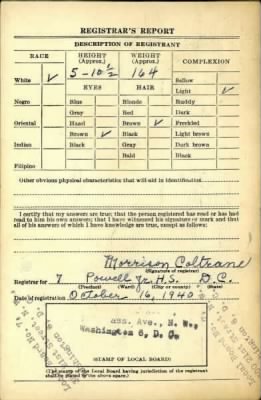 REGISTRAR'S REPORT
DESCRIPTION OF REGISTRANT
RACE HEIGHT (Approx.) WEIGHT (Approx.) COMPLEXION
5-10½ 164 Sallow
White ✓ EYES HAIR Light ✓
Negro Blue Blonde Ruddy
Gray Red Dark
Oriental Hazel Brown ✓ Freckled
Brown ✓ Black Light brown
Indian Black Gray Dark brown
Bald Black
Filipino
Other obvious physical characteristics that will aid in identification
I certify that my answers are true; that the person registered has read or has had
read to him his own answers; that I have witnessed his signature or mark and that
all of his answers of which I have knowledge are true, except as follows:
Morrison Coltrane
(Signature of registrar)
Registrar for 7 Powell Jr. H.S. D.C.
(Precinct) (Ward) (City or county) (State)
Date of registration October 16, 1940
ass. Ave., N. W.,
Washington 6, D. C.
(STAMP OF LOCAL BOARD)
(The stamp of the Local Board having jurisdiction of the registrant
shall be placed in the above space.)